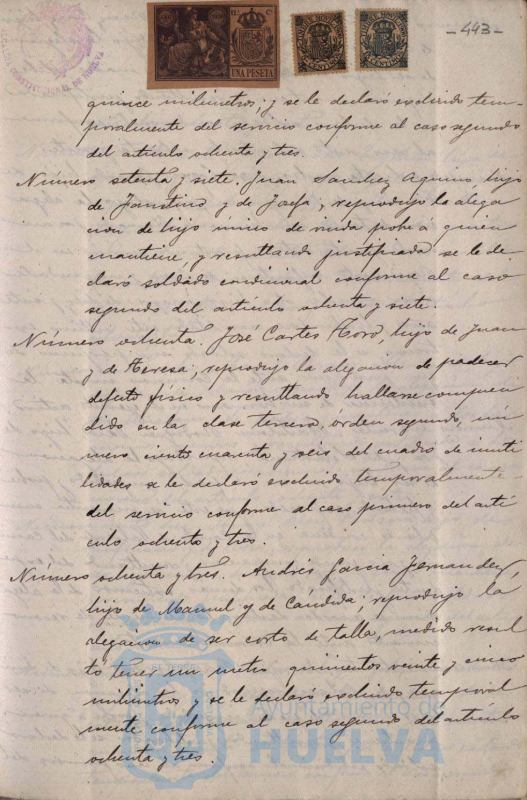 -493-
UNA PESETA
quince milimetros; y se le declaró excluido tem-
poralmente del servicio conforme al caso segundo
del articulo ochenta y tres.
Número setenta y siete. Juan Sanchez Aquino, hijo
de Faustino y de Josefa, reprodujo la alega
cion de hijo único de viuda pobre á quien
mantiene, y resultando justificada se le de
claró soldado condicional conforme al caso
segundo del articulo ochenta y siete.
Número ochenta. José Cartes Toro, hijo de Juan
y de Teresa; reprodujo la alegacion de padecer
defecto físico y resultando hallarse compren
dido en la clase tercera, órden segundo, nú
mero ciento cuarenta y seis del cuadro de inuti
lidades se le declaró excluido temporalmente
del servicio conforme al caso primero del artí
culo ochenta y tres.
Número ochenta y tres. Andrés Garcia Fernandez,
hijo de Manuel y de Cándida; reprodujo la
alegacion de ser corto de talla, medido resul
tó tener un metro quinientos veinte y cinco
milimetros y se le declaró excluido temporal
mente conforme al caso segundo del artículo
ochenta y tres.
Ayuntamiento de
HUELVA